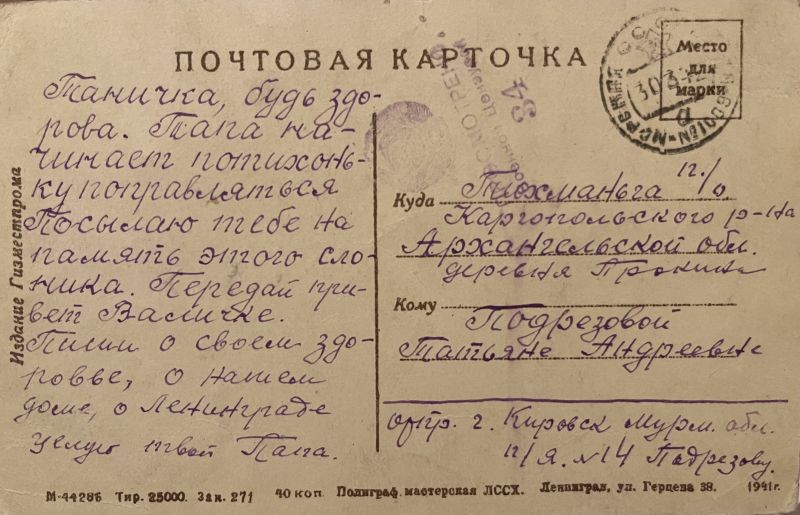 ПОЧТОВАЯ КАРТОЧКА
Место
для
марки
30.3.42
Таничка, будь здо-
рова. Папа на-
чинает потихонь-
ку поправляться
Посылаю тебе на
память этого сло-
ника. Передай при-
вет Васичке.
Пиши о своем здо-
ровье, о нашем
доме, о Ленинграде
Целую твой Папа.
Куда Тихманьга п/о,
Каргопольского р-на
Архангельской обл.
деревня Пронина
Кому
Подрезовой
Татьяне Андреевне
отпр. г. Кировск Мурм. обл.
п/я. №14 Подрезову.
Издание Гизместпрома
М-44286 Тир. 25000. Зак. 271 40 коп. Полиграф. мастерская ЛССХ. Ленинград, ул. Герцена 38. 1941г.